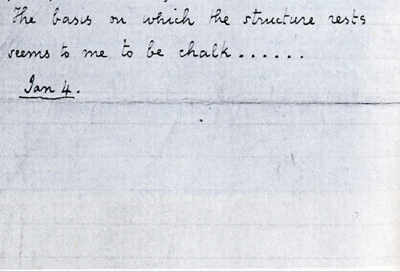 The basis on which the structure rests
seems to me to be chalk......
Jan 4.